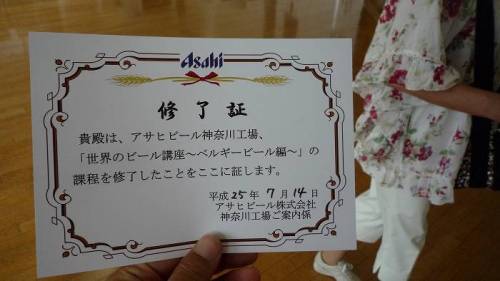 Asahi
修了証
貴殿は、アサヒビール神奈川工場、
「世界のビール講座〜ベルギービール編〜」の
課程を修了したことをここに証します。
平成25年7月14日
アサヒビール株式会社
神奈川工場ご案内係